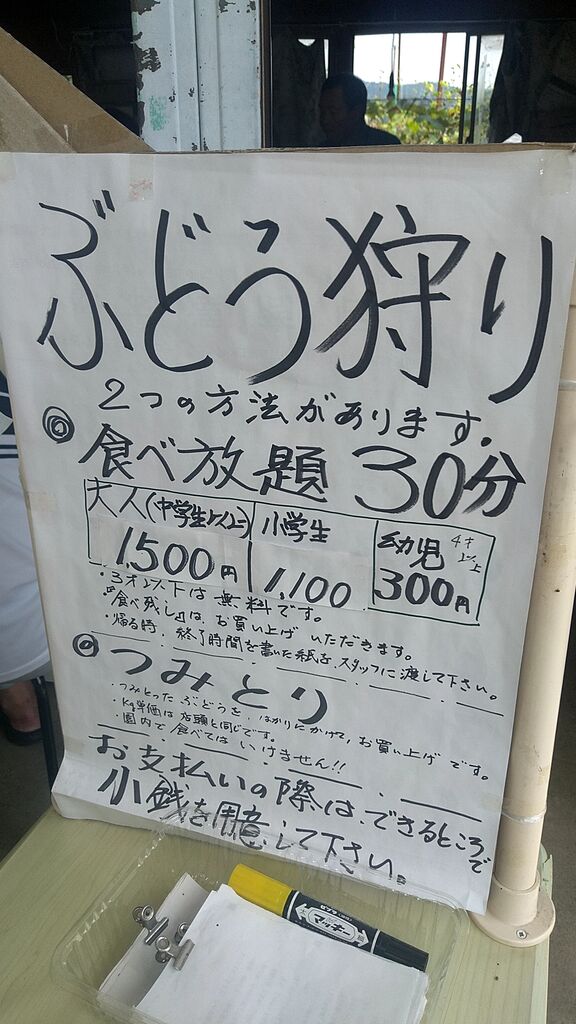 ぶどう狩り
2つの方法があります。
◎食べ放題 30分
大人(中学生以上) 小学生 幼児 4才以上
1,500円 1,100 300円
・3才以下は無料です。
『食べ残し』は、お買い上げいただきます。
・帰る時、終了時間を書いた紙を、スタッフに渡して下さい。
◎つみとり
・つみとったぶどうを、はかりにかけて、お買い上げです。
・Kg単価は店頭と同じです。
・園内で食べてはいけません!!
お支払いの際は、できるところで
小銭を用意して下さい。
マッキー